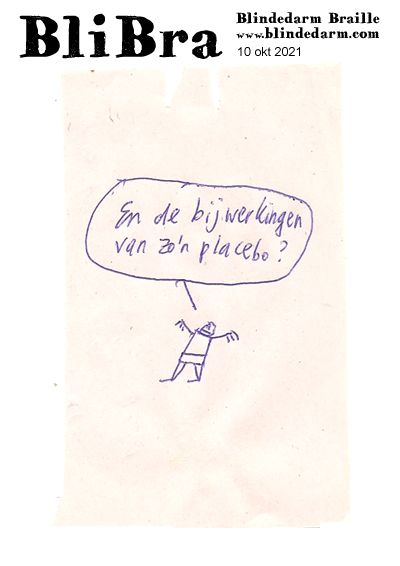 BliBra
Blindedarm Braille
www.blindedarm.com
10 okt 2021
En de bijwerkingen
van zo'n placebo?